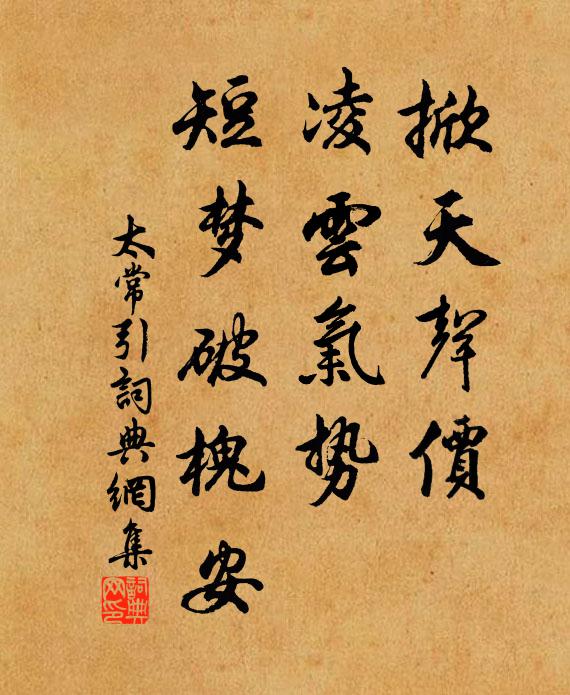 掀天聲價
凌雲氣勢
短梦破槐安
太常引詞典網集
詞典网印